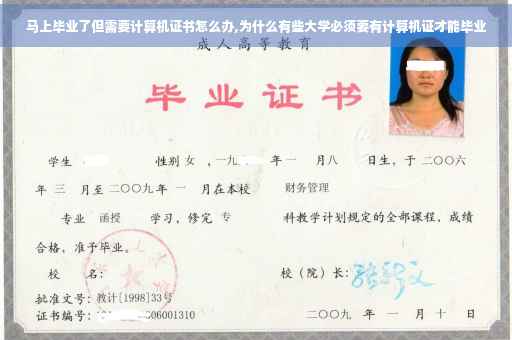 马上毕业了但需要计算机证书怎么办,为什么有些大学必须要有计算机证才能毕业
成人高等教育
毕业证书
学生 性别 女 ,一九 年一 月八 日生,于二〇〇六
年 三 月至二〇〇九年 一 月在本校 财务管理
专业 函授 学习,修完 专 科教学计划规定的全部课程,成绩
合格,准予毕业。
校 名: 校(院)长:
批准文号:教计[1998]33号
证书编号: 06001310 二〇〇九 年 一 月 十 日